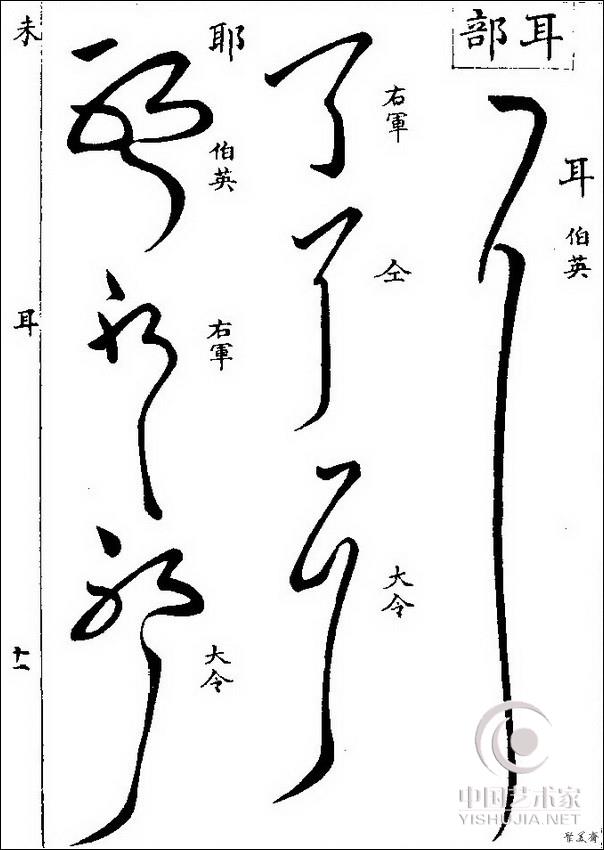 耳部
耳
伯英
右軍
仝
大令
耶
伯英
右軍
大令
未
耳
十一
中国艺术家
YISHUJIA.NET